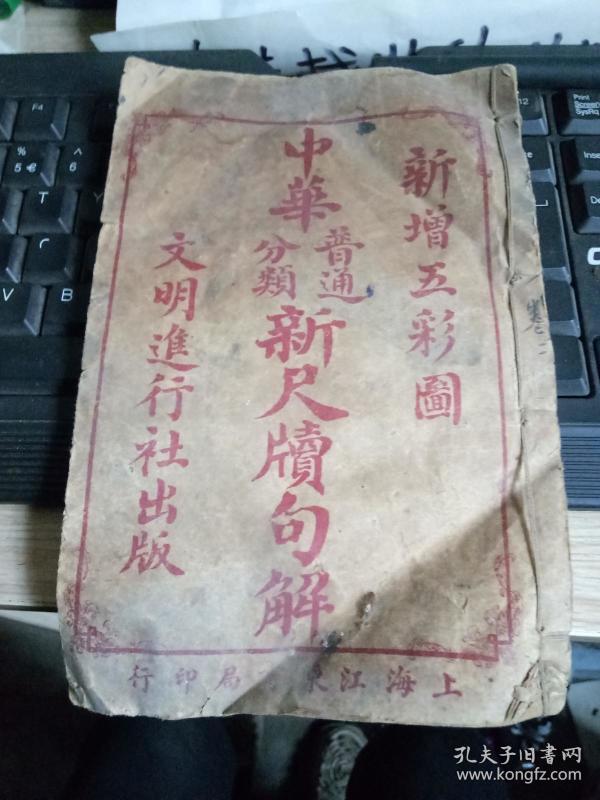 新增五彩圖
中華普通分類新尺牘句解
文明進行社出版
上海江東 局印行
卷二
孔夫子旧书网
www.kongfz.com
F4
F12
Print
Screen
SysRq
Insert
%
5 €
6
V
B